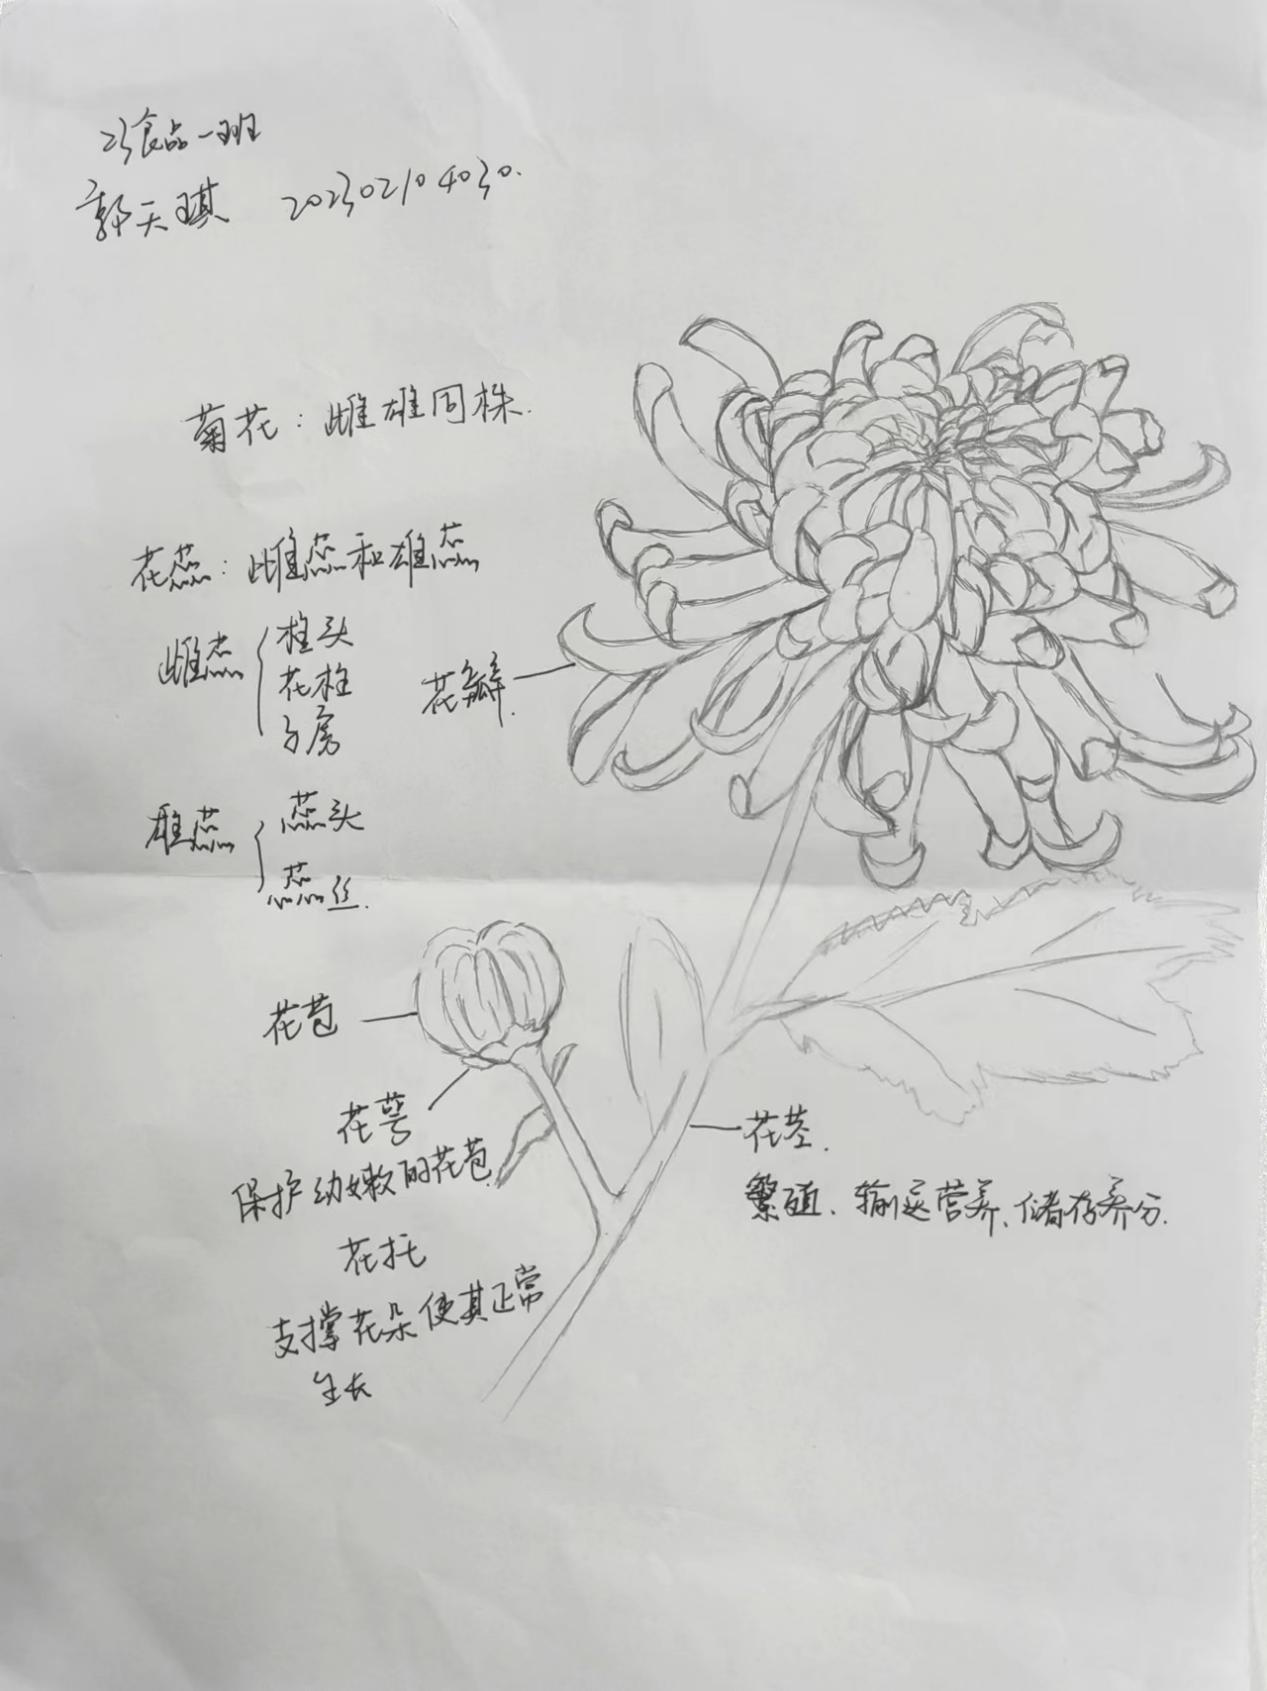 23食品一班
郭天琪 202302104030.
菊花：雌雄同株.
花蕊：雌蕊和雄蕊
雌蕊 { 柱头
花柱
子房
花瓣.
雄蕊 { 蕊头
蕊丝.
花苞
花萼
保护幼嫩的花苞.
花托
支撑花朵使其正常
生长
花茎.
繁殖、输送营养、储存养分.